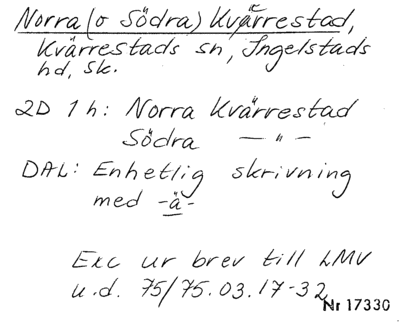 Norra (o Södra) Kvärrestad,
Kvärrestads sn, Ingelstads
hd, Sk.
2D 1h: Norra Kvärrestad
Södra — " —
DAL: Enhetlig skrivning
med -ä-
Exc ur brev till LMV
u.d. 75/75.03.17-32
Nr 17330